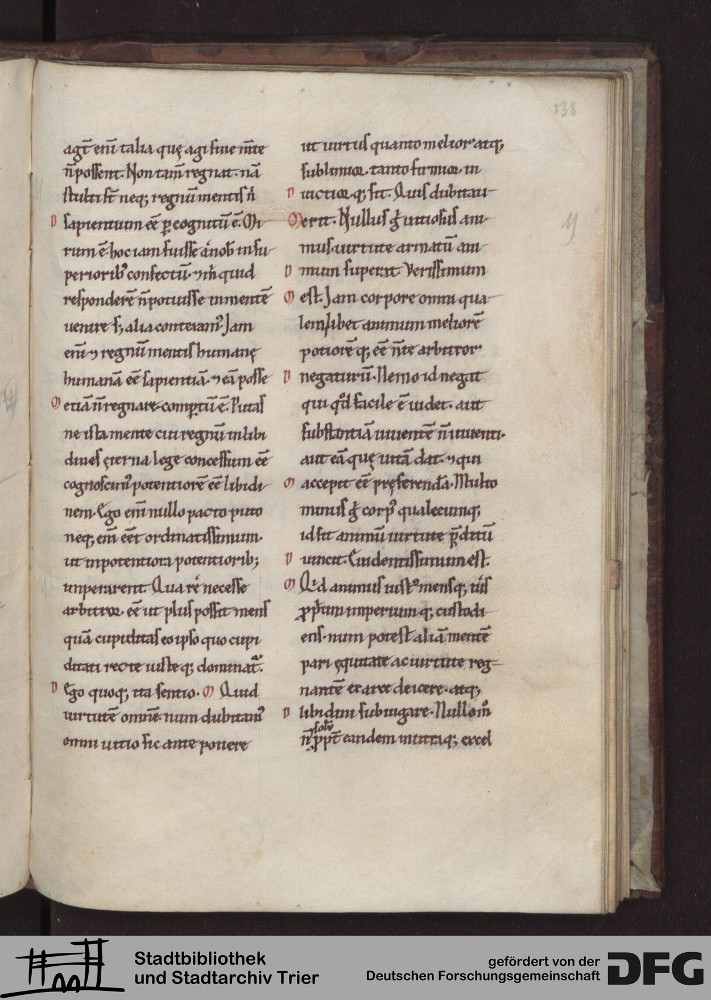 138
agt̄ enī talia quę agi sine m̄te
n̄ possent. Non tam̄ regnat. nā
stulti st̄ neq; regnū mentis n̄
D sapientium eē p̱ cognitū ē. Mi
rum ē. hoc iam fuisse a nob̄ in su
periorib; confectū. ⁊ m̄ quid
responderē n̄ potuisse in mentē
venire s; alia conteram᷒ Jam
enī ⁊ regnū mentis humanę
humanā eē sapientiā. ⁊ eā posse
M etiā n̄ regnare. comptū ē. Putas
ne ista mente cui regnū in libi
dines ęterna lege concessum eē
cognoscim᷒ potentiorē eē libidi
nem. Ego enī nullo pacto puto
neq; enī eēt ordinatissimum.
ut inpotentiora potentiorib;
imperarent. Quare necesse
arbitror. eē ut plus possit mens
quā cupiditas eo ipso quo cupi
ditati recte iusteq; dominat᷒.
D Ego quoq; ita sentio. M Quid
virtutē omnē num dubitam᷒
omni vitio sic ante ponere
ut virtus quanto melior atq;
sublimior. tanto firmior in
D victior q; sit. Quis dubitau
M erit. Nullus g̊ vitiosus ani
mus. virtute armatū ani
D mum superat. Verissimum
M est. Jam corpore omni qua
lemlibet animum meliorē
potiorē q; eē n̄ te arbitror
D negaturū. Nemo id negat
qui qd̄ facile ē videt. aut
substantiā viventē n̄ viventi.
aut eā quę vitā dat. ⁊ qui
M accepit eē pręferendā. Multo
minus g̊ corp᷒ qualecumq;
id sit animū virtute p̄ditū
D vincit. Evidentissimum est.
M Qid animus iust᷒ mensq; ius
ꝓprium imperium q; custodi
ens. num potest aliā mentē
pari ęquitate ac virtute reg
nantē ex arce deicere. atq;
D libidini subiugare. Nullo m̊
n̄ solū ꝓpt̄ eandem in utraq; excel
Stadtbibliothek
und Stadtarchiv Trier
gefördert von der
Deutschen Forschungsgemeinschaft
DFG